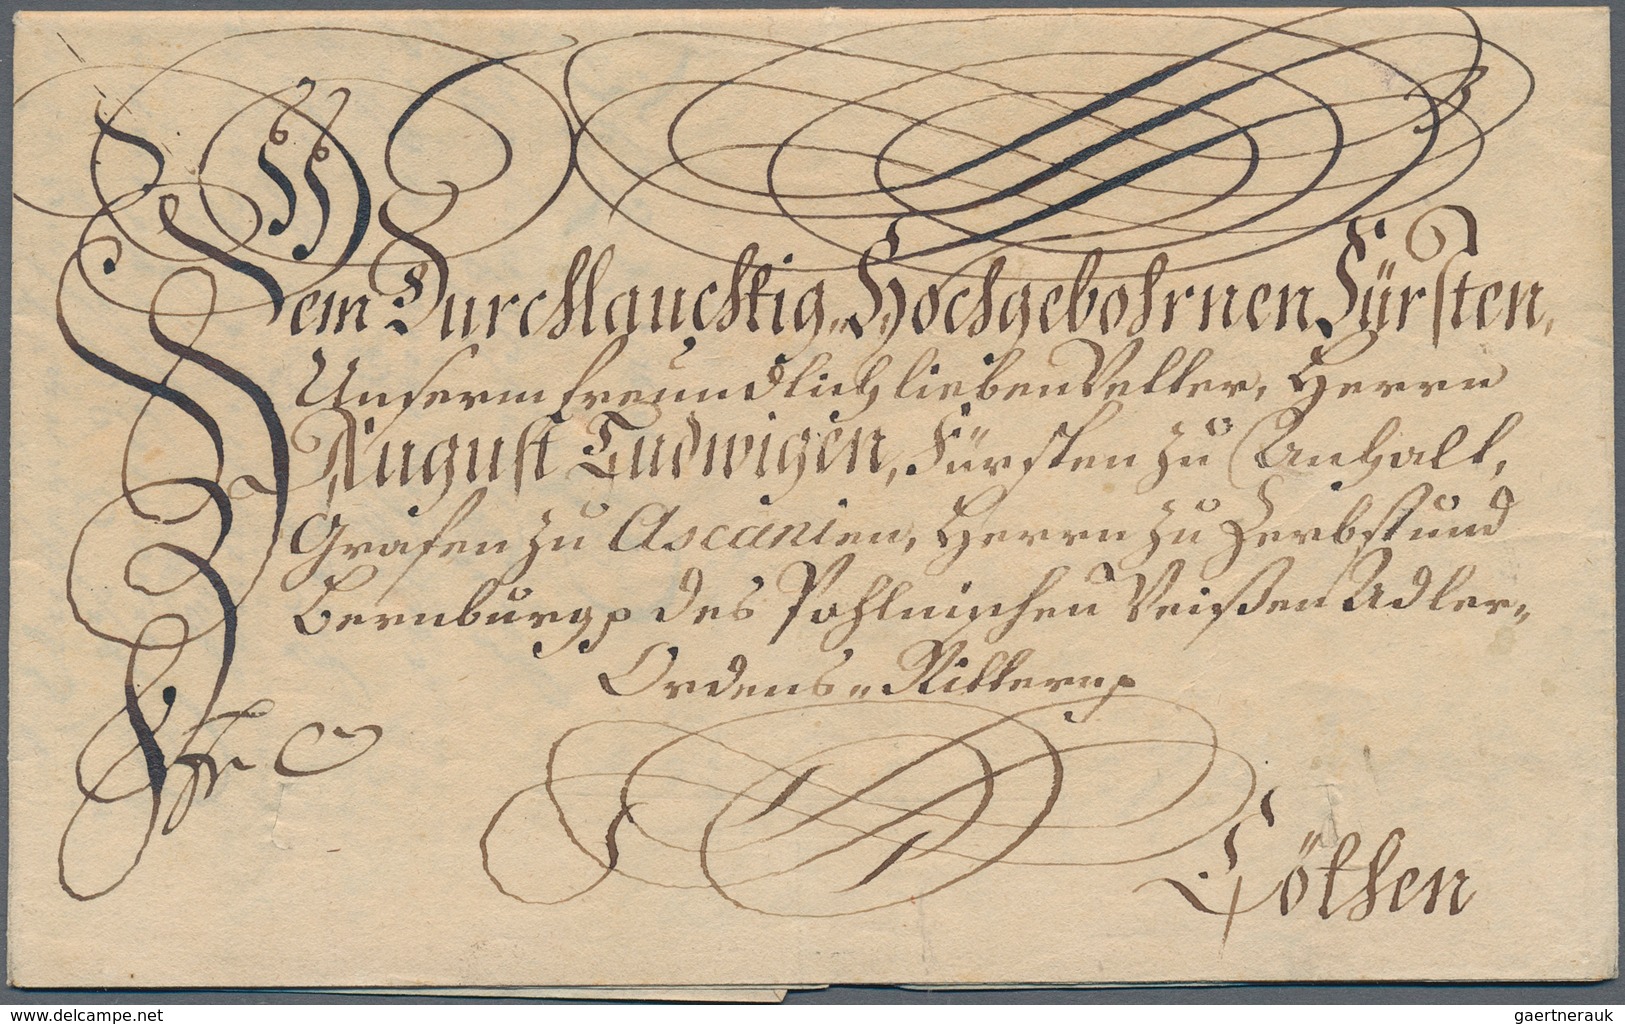 Dem Durchlauchtig-Hochgebohrnen Fürsten,
Unserm freundlich lieben Vetter, Herrn
August Ludwigen, Fürsten zu Anhalt,
Grafen zu Ascanien, Herrn zu Zerbst und
Bernburg p des Pohlnischen Weißen Adler-
Ordens-Rittern p
Cöthen
www.delcampe.net
gaertnerauk